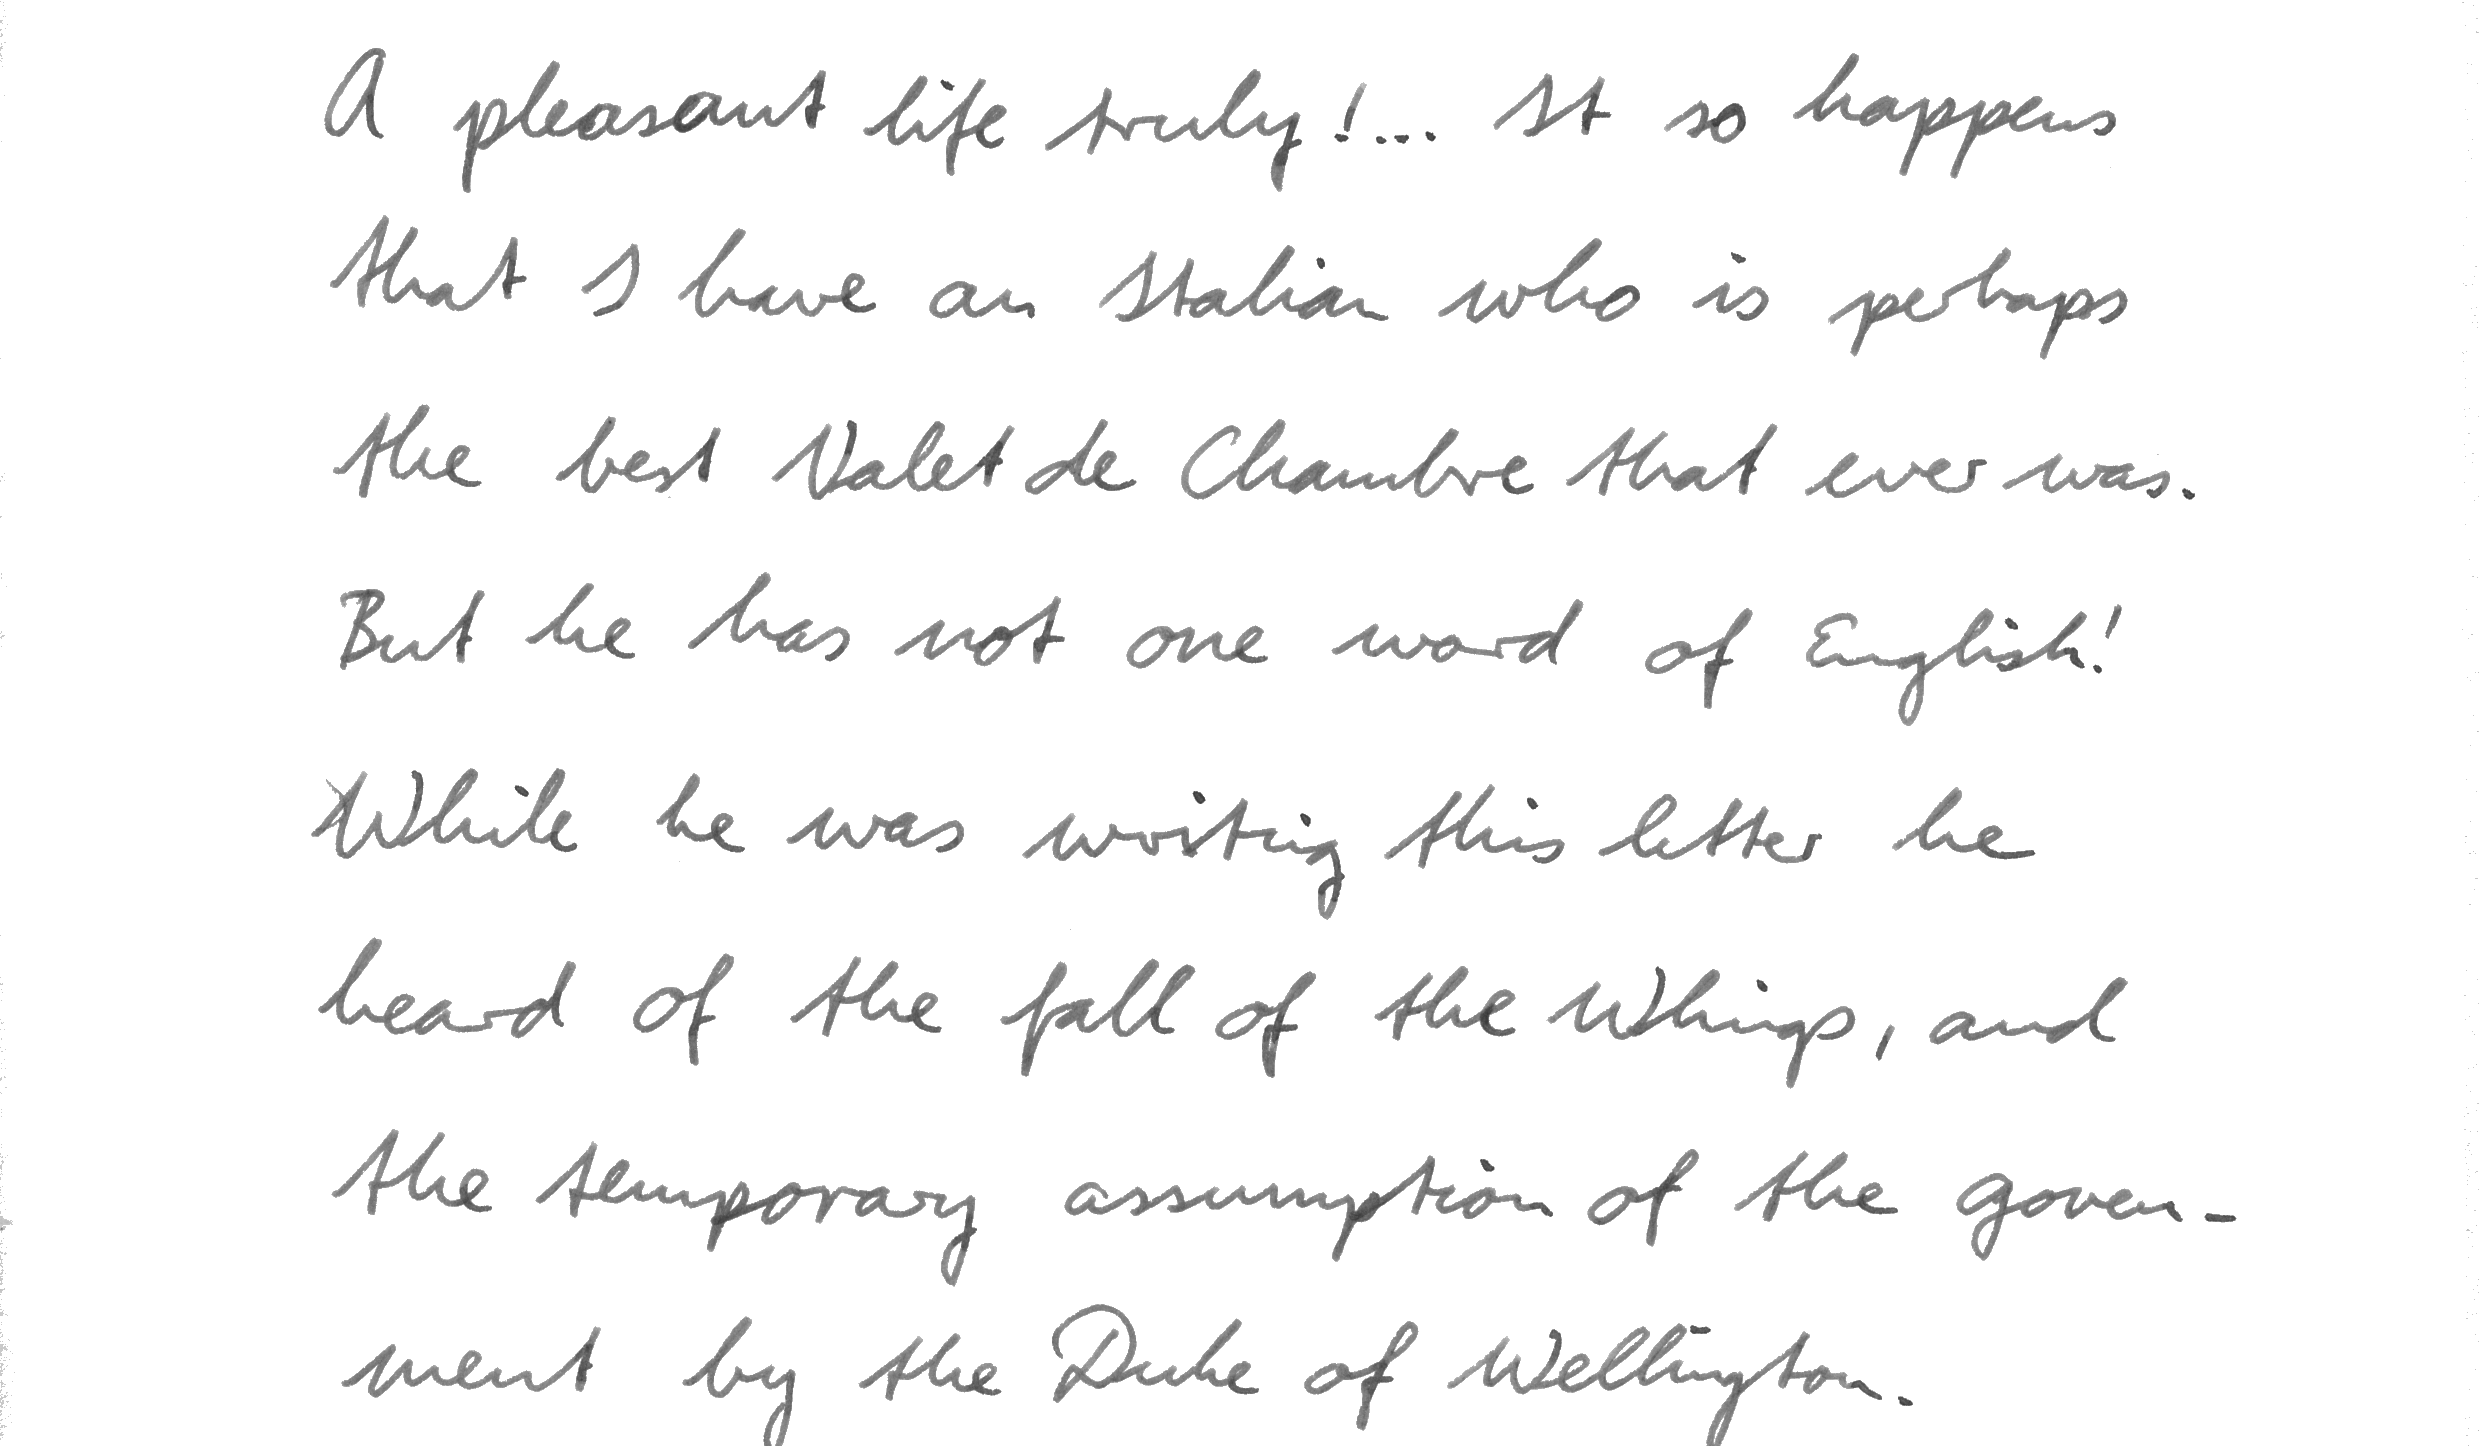 A pleasant life truly!... It so happens
that I have an Italian who is perhaps
the best Valet de Chambre that ever was.
But he has not one word of English!
While he was writing this letter he
heard of the fall of the Whings, and
the temporary assumption of the govern-
ment by the Duke of Wellington.